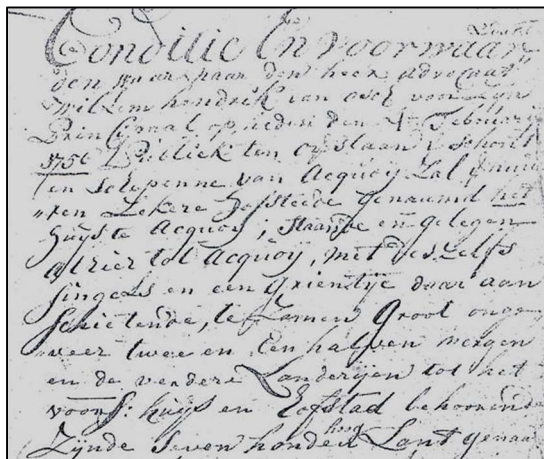 Conditie En voorwaar
den waar naar den heer Advocaat
Willem hendrik van voor
Principaal op heden den 4 Februarij
1756 Publiek ten overstaan schout
en schepenne van Acquoy Zal
sekere Hofsteede genaamd het
huys te Acquoy; staande en gelegen
alhier tot Acquoy, met deszelfs
singels en een grientje daar aan
schietende, te Zamen Groot onge
veer twee en Een halven mergen
en de verdere Landerijen tot het
voors: huys en Hofstad behoorende
Zijnde seven honden hoog Land genaa